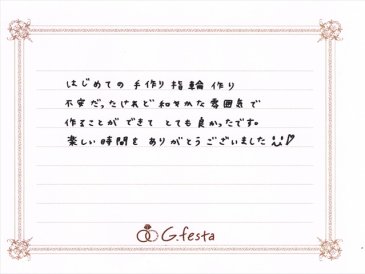 はじめての 手作り 指輪 作り
不安だったけれど 和やかな 雰囲気で
作ることが できて とても 良かったです。
楽しい 時間を ありがとう ございました
G.festa